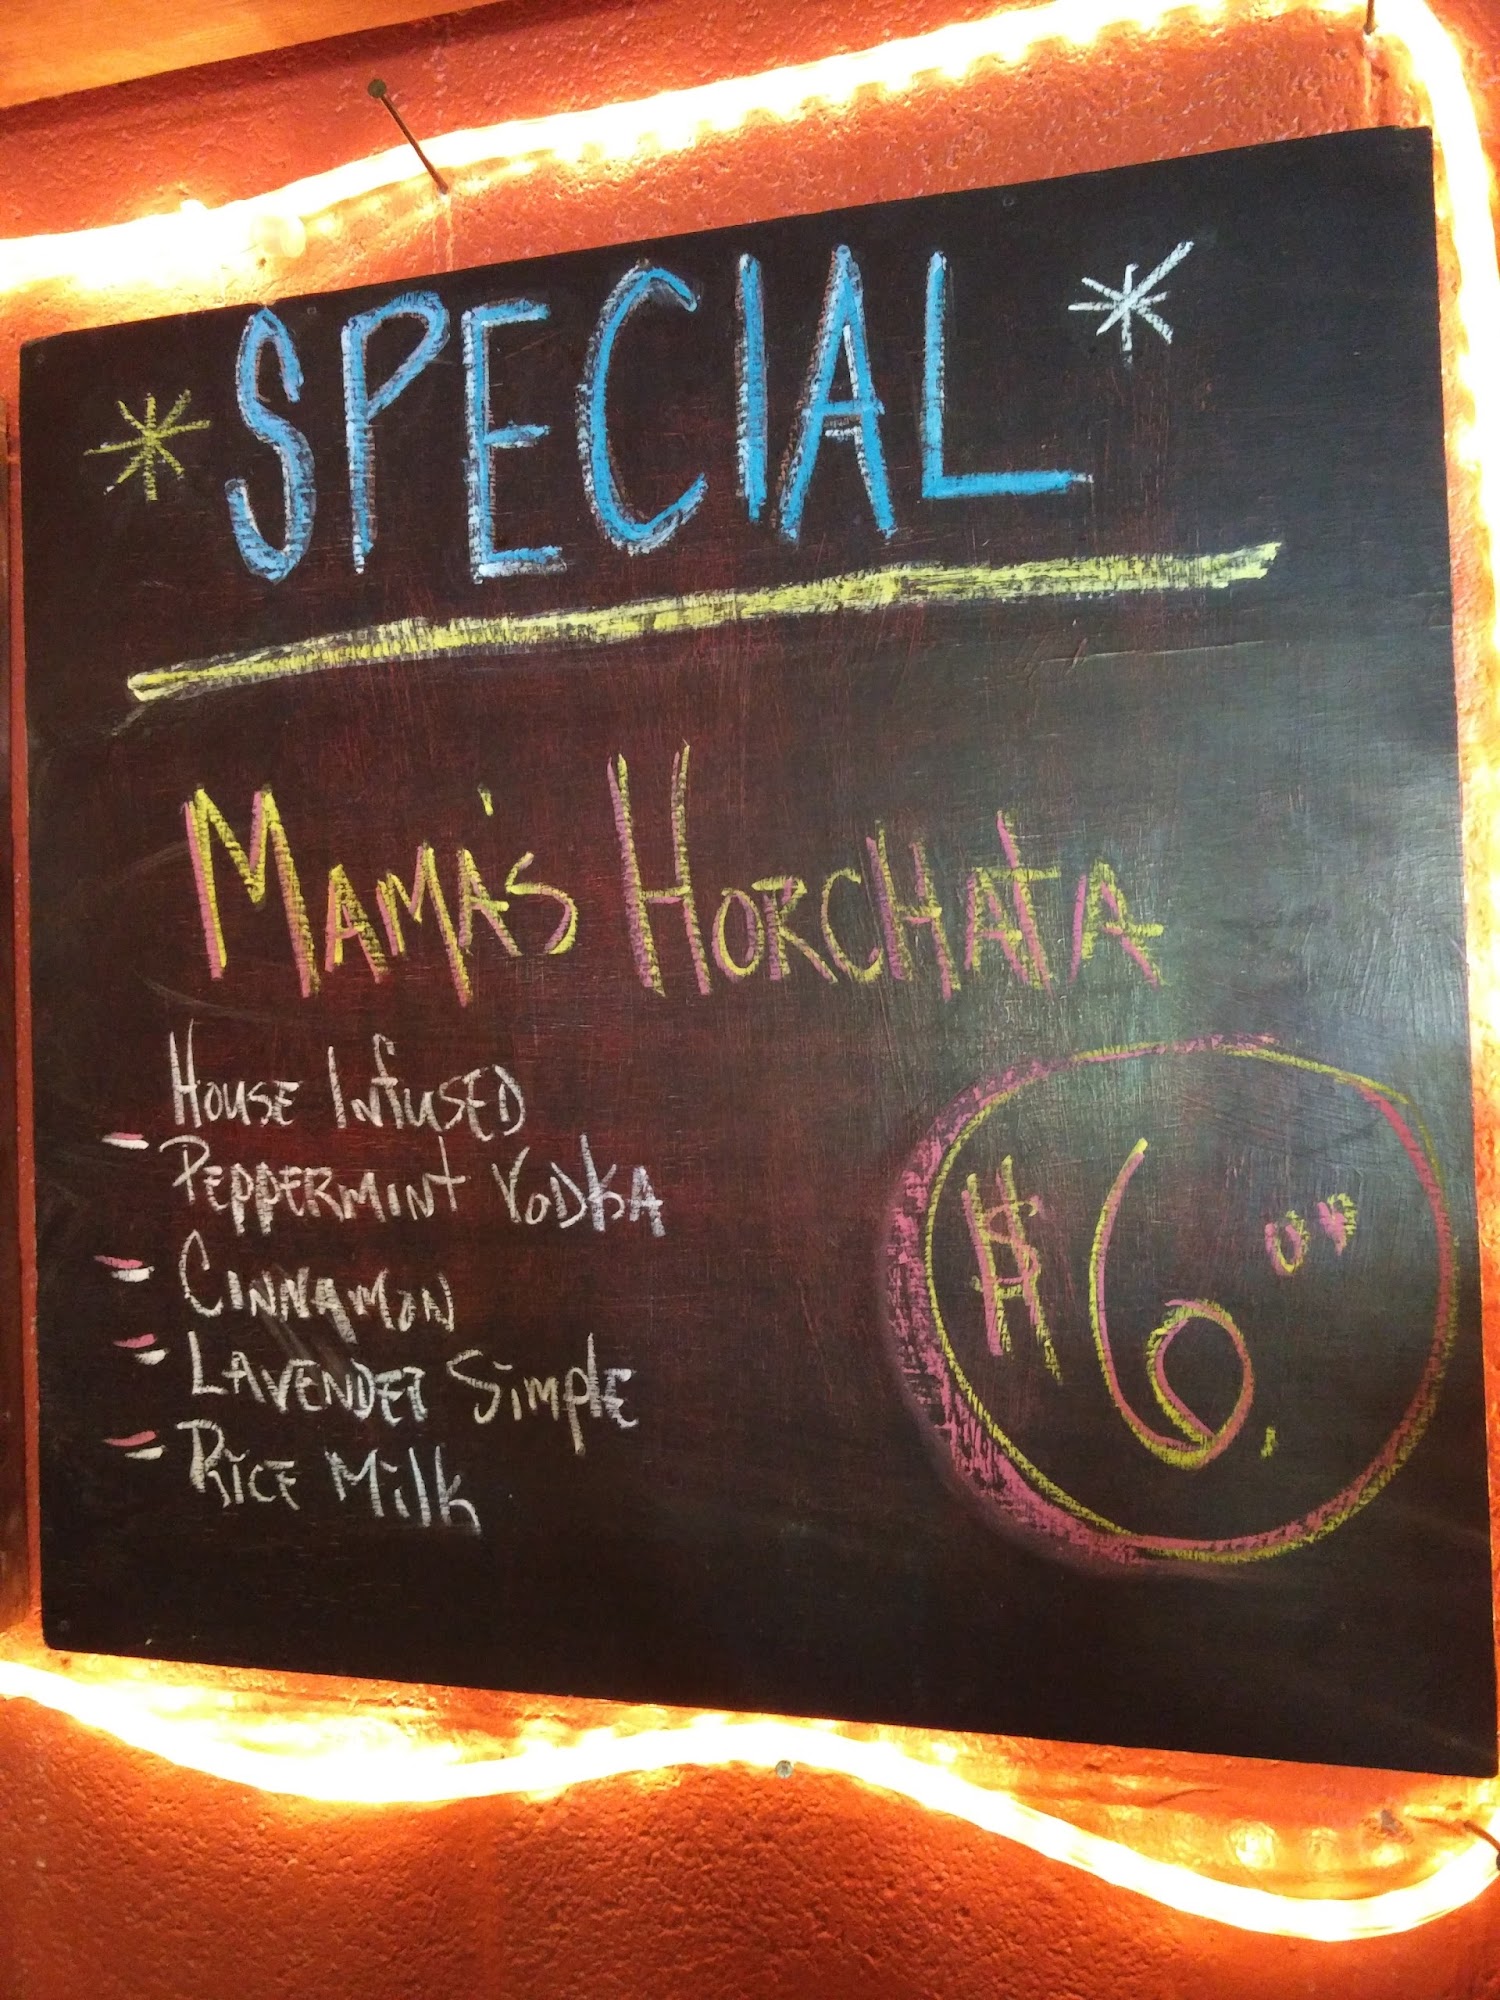 * SPECIAL *
MAMA'S HORCHATA
HOUSE INFUSED
- PEPPERMINT VODKA
- CINNAMON
- LAVENDER SIMPLE
- RICE MILK
$6.00